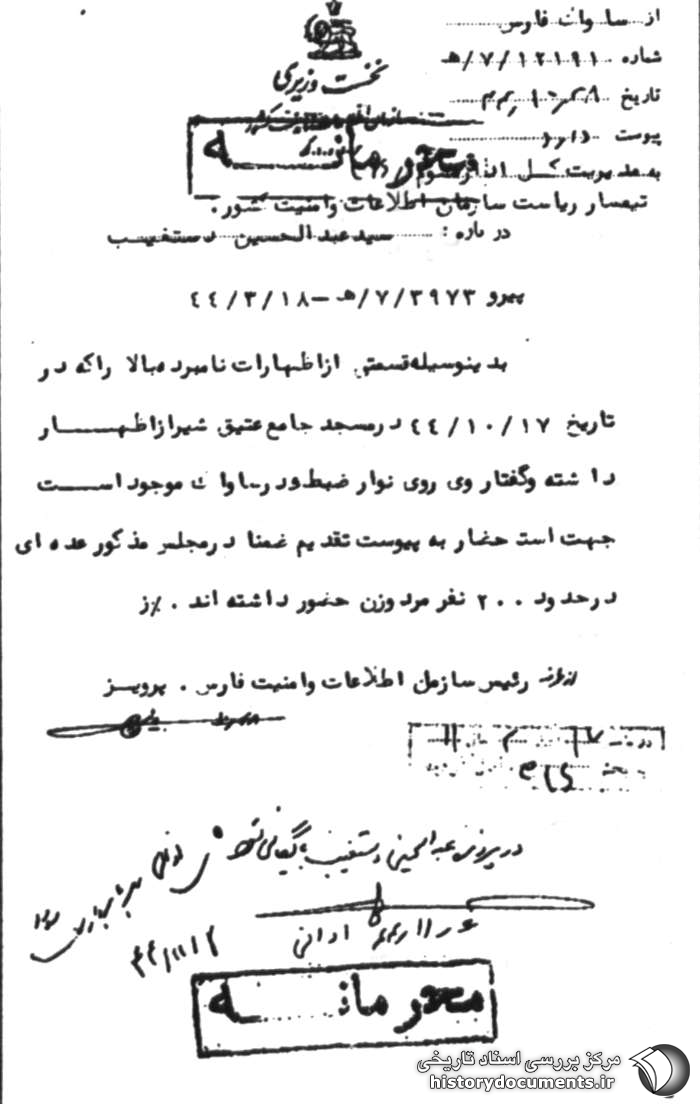 از ساواک فارس
شماره ۱۲۱۹۱/۷/هـ
تاریخ ۴۴/۱۰/۲۸
پیوست دارد
نخست وزیری
سازمان اطلاعات و امنیت کشور
محرمانه
به مدیریت کل اداره سوم
تیمسار ریاست سازمان اطلاعات و امنیت کشور.
درباره: سید عبدالحسین دستغیب
پیرو ۳۹۷۳/۷/هـ - ۴۴/۳/۱۸
بدینوسیله قسمتی از اظهارات نامبرده بالا را که در
تاریخ ۴۴/۱۰/۱۷ در مسجد جامع عتیق شیراز اظهار
داشته و گفتار وی روی نوار ضبط و در ساواک موجود است
جهت استحضار به پیوست تقدیم ضمنا در مجلس مذکور عده ای
در حدود ۲۰۰ نفر مرد و زن حضور داشته اند. %ز
از طرف رئیس سازمان اطلاعات و امنیت فارس. پرویز
در پرونده عبدالحسین دستغیب بایگانی شود
محرمانه
مرکز بررسی اسناد تاریخی
historydocuments.ir